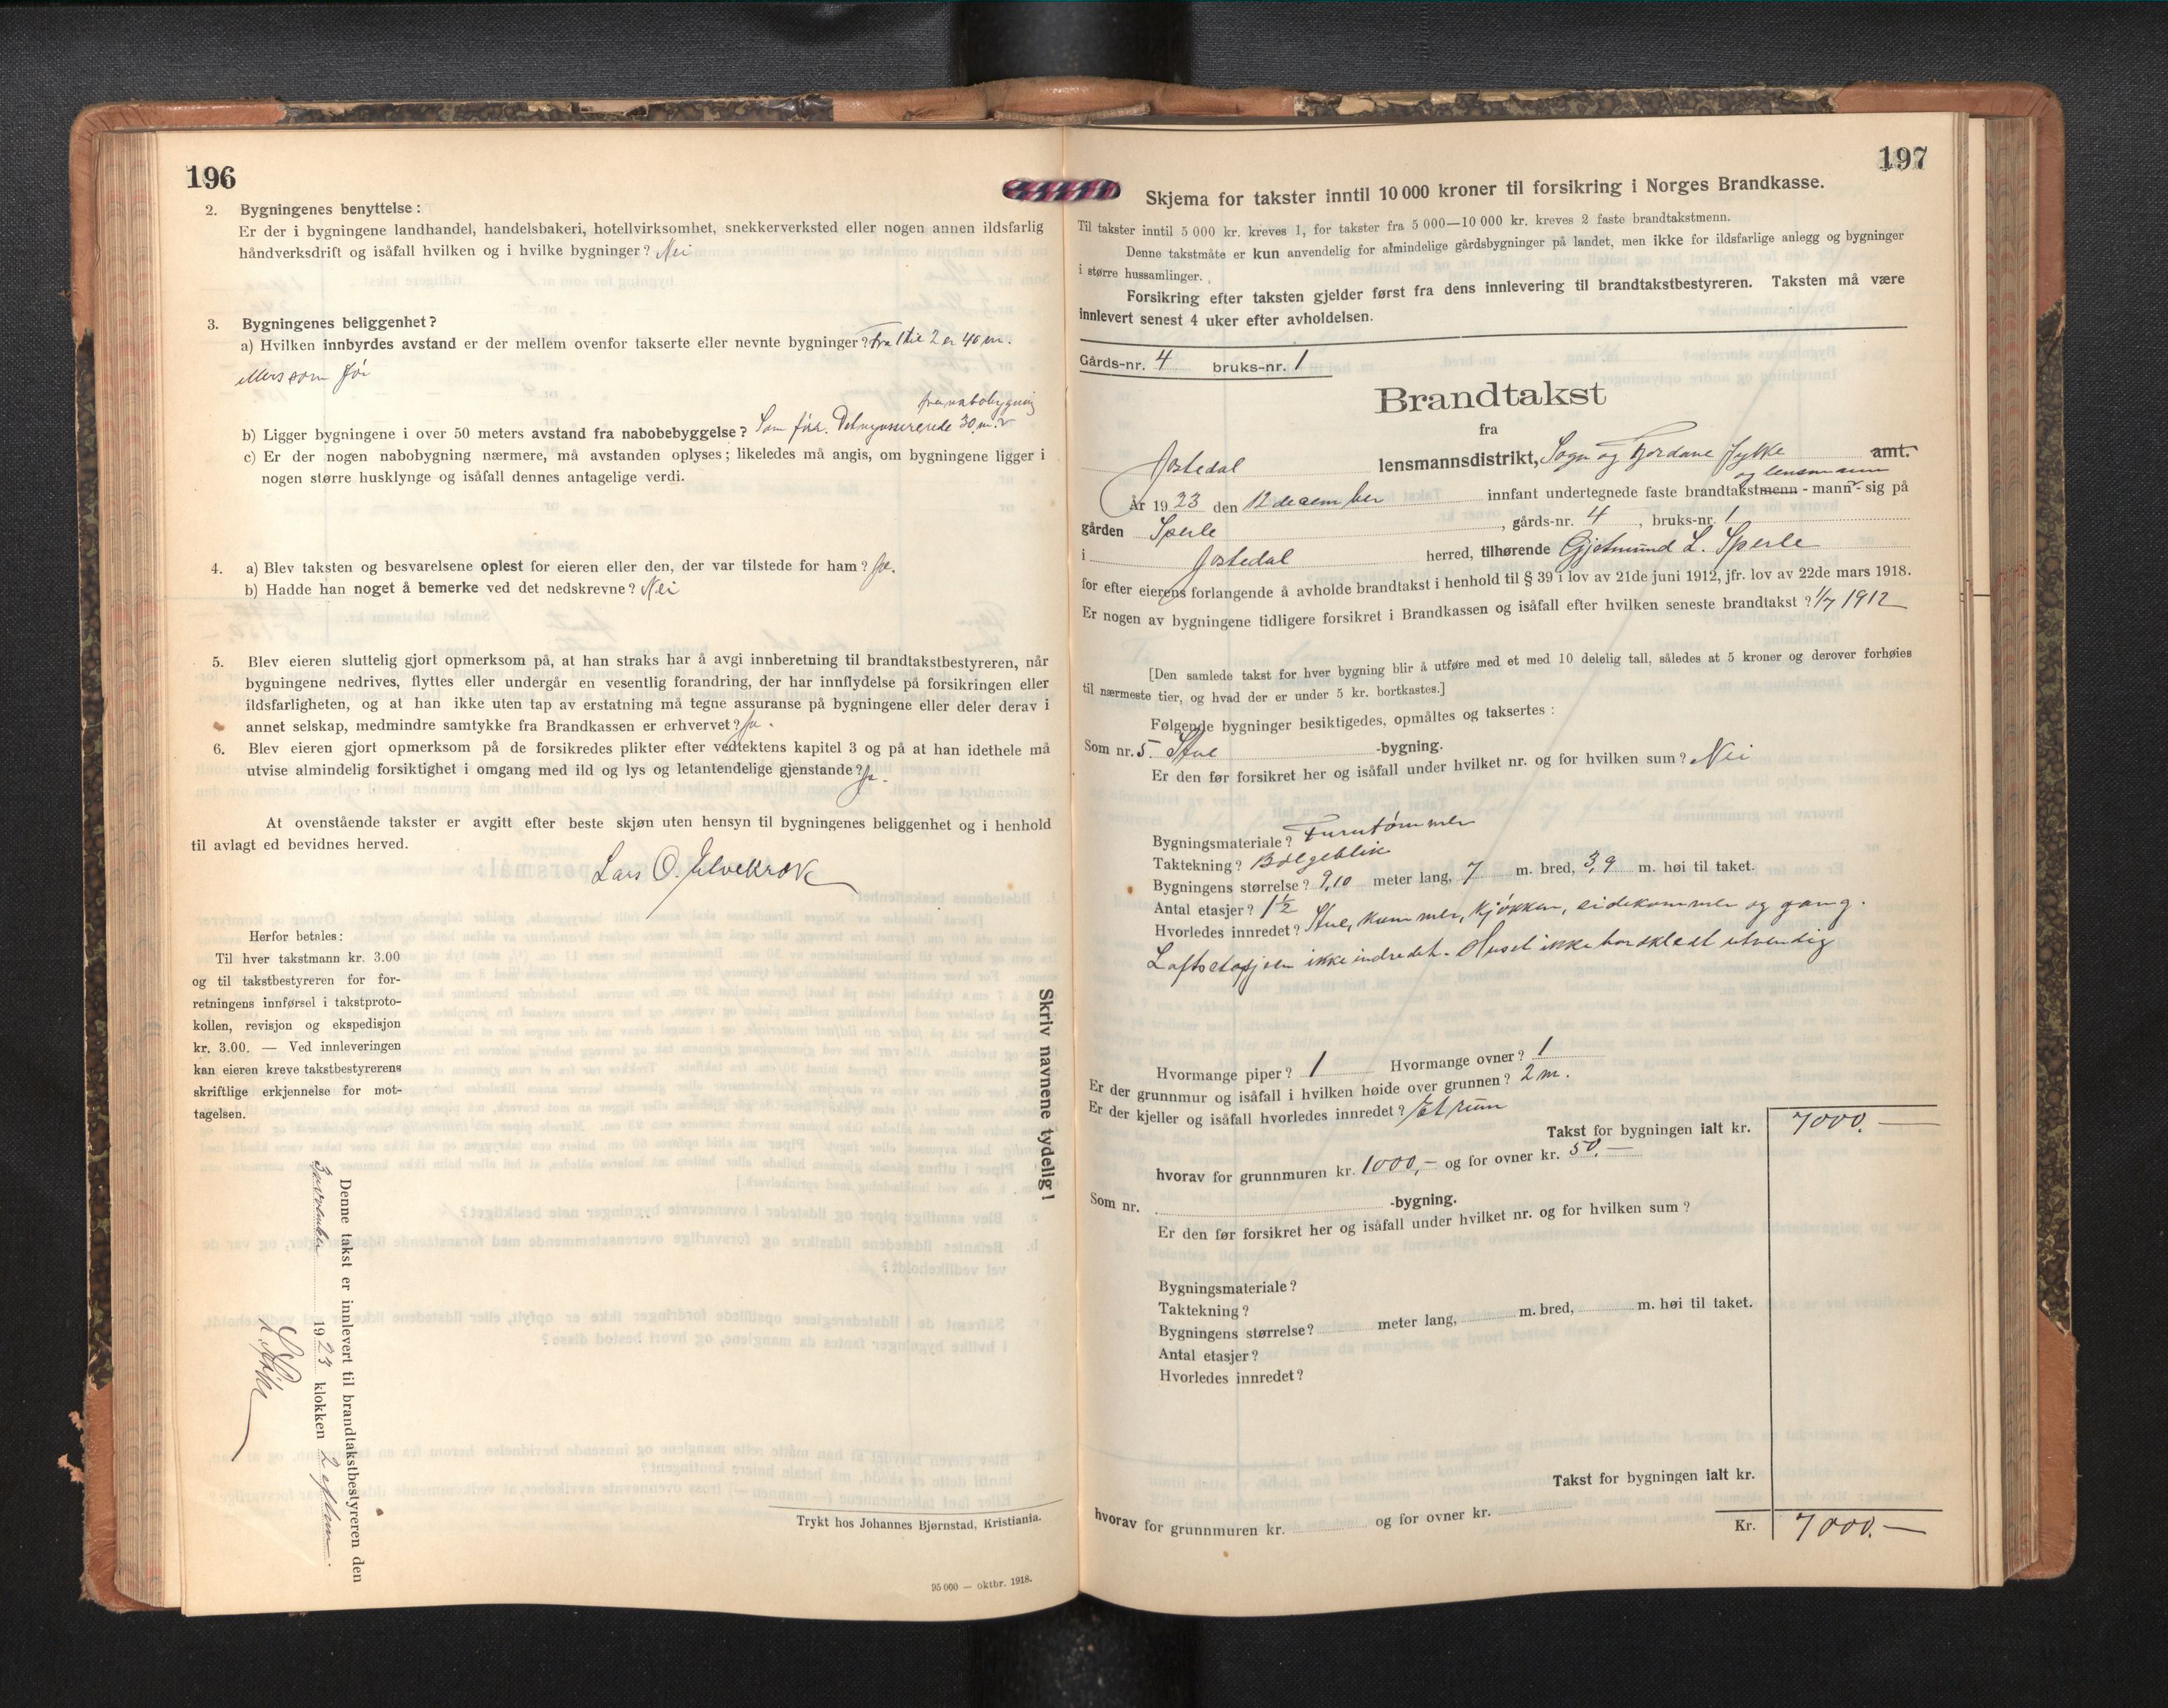 196
2. Bygningenes benyttelse:
Er der i bygningene landhandel, handelsbakeri, hotellvirksomhet, snekkerverksted eller nogen annen ildsfarlig
håndverksdrift og isåfall hvilken og i hvilke bygninger? Nei
3. Bygningenes beliggenhet?
a) Hvilken innbyrdes avstand er der mellem ovenfor takserte eller nevnte bygninger? Fra 1 til 2 er 40 m.
ellers som før
fra nabobygning
b) Ligger bygningene i over 50 meters avstand fra nabobebyggelse? Som før. Det nyassurerede 30 m.
c) Er der nogen nabobygning nærmere, må avstanden oplyses; likeledes må angis, om bygningene ligger i
nogen større husklynge og isåfall dennes antagelige verdi.
4. a) Blev taksten og besvarelsene oplest for eieren eller den, der var tilstede for ham? Ja.
b) Hadde han noget å bemerke ved det nedskrevne? Nei
5. Blev eieren sluttelig gjort opmerksom på, at han straks har å avgi innberetning til brandtakstbestyreren, når
bygningene nedrives, flyttes eller undergår en vesentlig forandring, der har innflydelse på forsikringen eller
ildsfarligheten, og at han ikke uten tap av erstatning må tegne assuranse på bygningene eller deler derav i
annet selskap, medmindre samtykke fra Brandkassen er erhvervet? Ja.
6. Blev eieren gjort opmerksom på de forsikredes plikter efter vedtektens kapitel 3 og på at han idethele må
utvise almindelig forsiktighet i omgang med ild og lys og letantendelige gjenstande? Ja.
At ovenstående takster er avgitt efter beste skjøn uten hensyn til bygningenes beliggenhet og i henhold
til avlagt ed bevidnes herved.
Lars O. Elvekrok
Herfor betales:
Til hver takstmann kr. 3.00
og til takstbestyreren for for-
retningens innførsel i takstproto-
kollen, revisjon og ekspedisjon
kr. 3.00. — Ved innleveringen
kan eieren kreve takstbestyrerens
skriftlige erkjennelse for mot-
tagelsen.
Skriv navnene tydelig!
Denne takst er innlevert til brandtakstbestyreren den
1923 klokken 2 eftm.
Trykt hos Johannes Bjørnstad, Kristiania.
95 000 — oktbr. 1918.
197
Skjema for takster inntil 10 000 kroner til forsikring i Norges Brandkasse.
Til takster inntil 5 000 kr. kreves 1, for takster fra 5 000—10 000 kr. kreves 2 faste brandtakstmenn.
Denne takstmåte er kun anvendelig for almindelige gårdsbygninger på landet, men ikke for ildsfarlige anlegg og bygninger
i større hussamlinger.
Forsikring efter taksten gjelder først fra dens innlevering til brandtakstbestyreren. Taksten må være
innlevert senest 4 uker efter avholdelsen.
Gårds-nr. 4 bruks-nr. 1
Brandtakst
fra
Jostedal lensmannsdistrikt, Sogn og Fjordane fylke amt.
og lensmann
År 1923 den 12 december innfant undertegnede faste brandtakstmenn - mann - sig på
gården Sperle, gårds-nr. 4, bruks-nr. 1
i Jostedal herred, tilhørende Gjetmund L. Sperle
for efter eierens forlangende å avholde brandtakst i henhold til § 39 i lov av 21de juni 1912, jfr. lov av 22de mars 1918.
Er nogen av bygningene tidligere forsikret i Brandkassen og isåfall efter hvilken seneste brandtakst? 1/7 1912
[Den samlede takst for hver bygning blir å utføre med et med 10 delelig tall, således at 5 kroner og derover forhøies
til nærmeste tier, og hvad der er under 5 kr. bortkastes.]
Følgende bygninger besiktigedes, opmåltes og taksertes:
Som nr. 5. Stue -bygning.
Er den før forsikret her og isåfall under hvilket nr. og for hvilken sum? Nei
Bygningsmateriale? Furutømmer
Taktekning? Bølgeblik
Bygningens størrelse? 9,10 meter lang, 7 m. bred, 3,9 m. høi til taket.
Antal etasjer? 1½
Hvorledes innredet? Stue, kammer, kjøkken, sidekammer og gang.
Loftsetasjen ikke indredet. Huset ikke bordklædt utvendig
Hvormange piper? 1 Hvormange ovner? 1
Er der grunnmur og isåfall i hvilken høide over grunnen? 2 m.
Er der kjeller og isåfall hvorledes innredet? Et rum
Takst for bygningen ialt kr. 7000.—
hvorav for grunnmuren kr. 1000,- og for ovner kr. 50.—
Som nr. -bygning.
Er den før forsikret her og isåfall under hvilket nr. og for hvilken sum?
Bygningsmateriale?
Taktekning?
Bygningens størrelse? meter lang, m. bred, m. høi til taket.
Antal etasjer?
Hvorledes innredet?
Takst for bygningen ialt kr.
hvorav for grunnmuren kr. og for ovner kr.
Kr. 7000.—